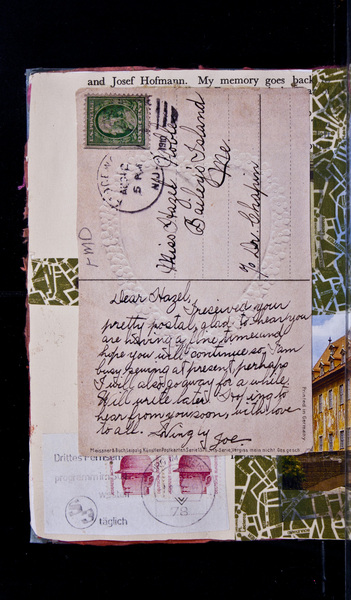 and Josef Hofmann. My memory goes back
Miss Hazel Noble
Bailey's Island
Me.
c/o Dr. Chapin
5 P M
N.J.
FMD
Dear Hazel,
I received your
pretty postal, glad to hear you
are having a fine time and
hope you will continue so. I am
busy sewing at present, perhaps
I will also go away for a while.
Will write later. Hoping to
hear from you soon, with love
to all.
Joe.
Printed in Germany
Meissner & Buch Leipzig Künstler-Postkarten Serie
Vergiss mein nicht
Drittes Fernseh
programm im
täglich
78